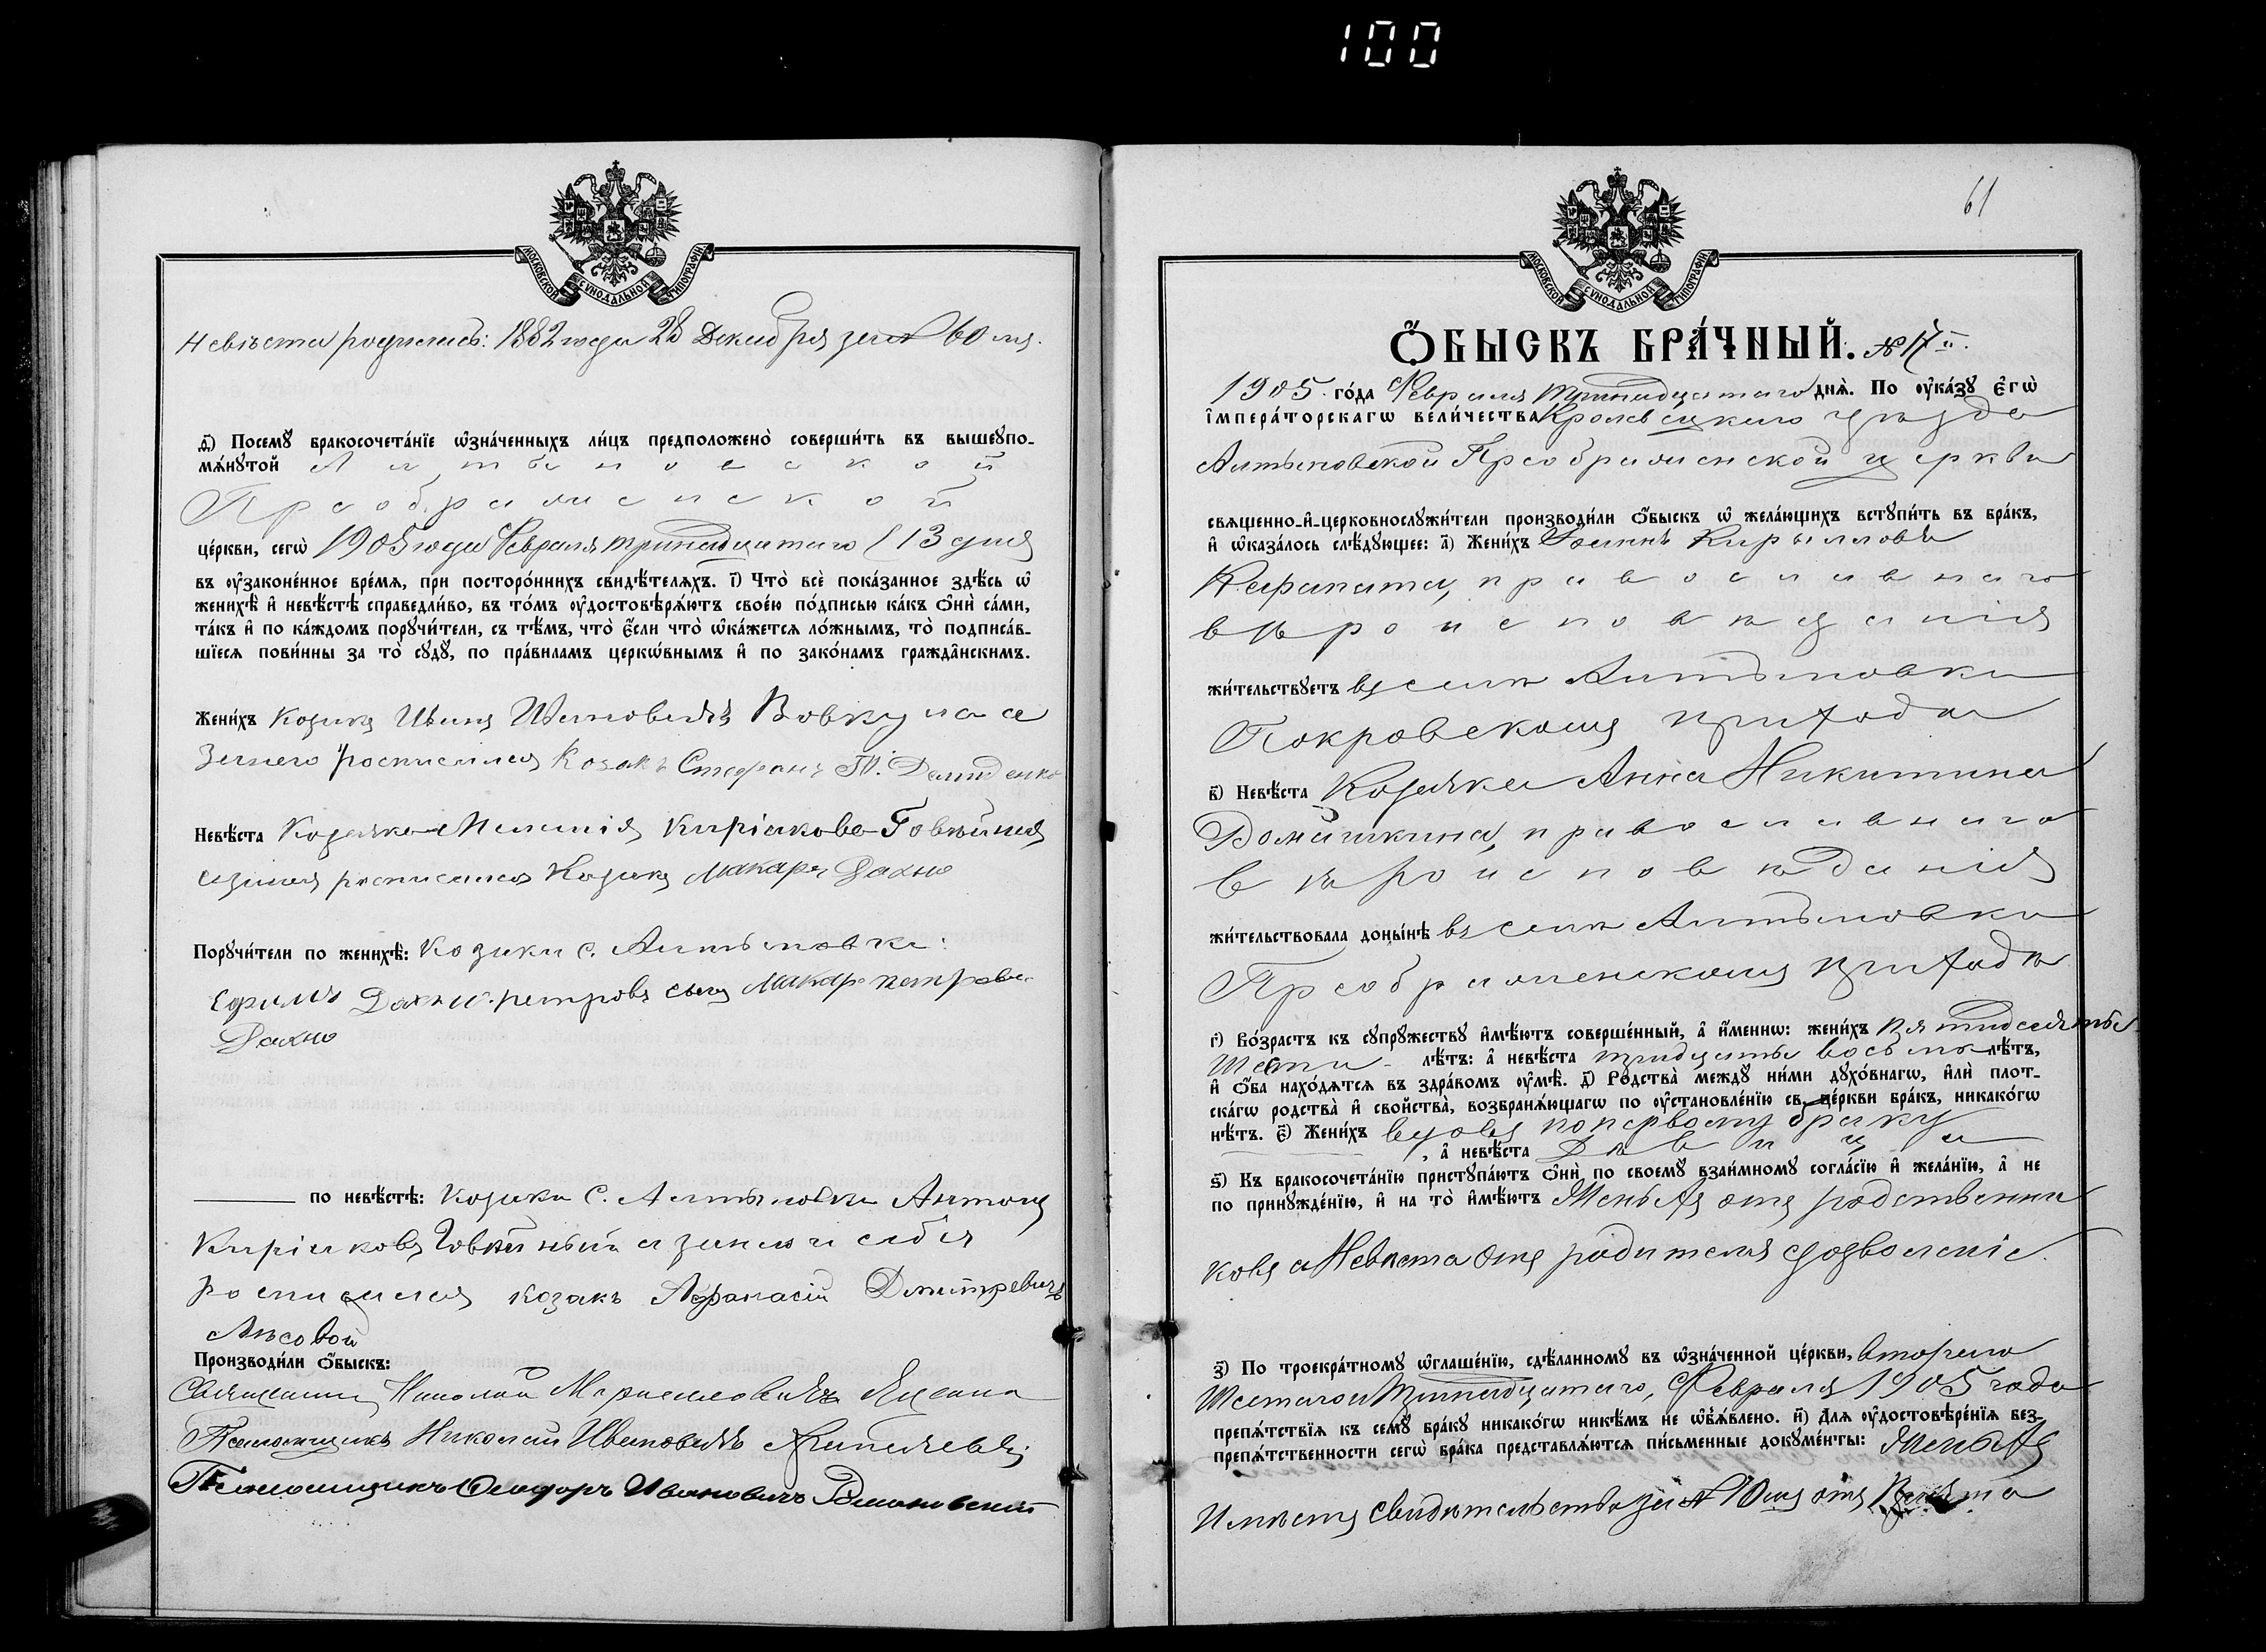 100
МОСКОВСКОЙ СУНОДАЛЬНОЙ ТИПОГРАФІИ
Невѣста родилась: 1882 года 28 Декабря за № 60 мъ.
д҃) Посемꙋ̀ бракосочета́нїе ѡ҆зна́ченныхъ ли́цъ предположено̀ соверши́ть въ вышеꙋпо-
мѧ́нꙋтой Алтыновской
Преображенской
це́ркви, сегѡ̀ 1905 года Февраля тринадцатаго (13 дня
въ ᲂу҆законе́нное вре́мѧ, при посторо́ннихъ свидѣ́телѧхъ. і҃) Что̀ всѐ пока́занное здѣ́сь ѡ҆
женихѣ̀ и҆ невѣ́стѣ справедли́во, въ то́мъ ᲂу҆достовѣрѧ́ютъ свое́ю по́дписью ка́къ ѻ҆нѝ са́ми,
та́къ и҆ по ка́ждомъ порꙋчи́тели, съ тѣ́мъ, что̀ є҆́сли что̀ ѡ҆ка́жетсѧ ло́жнымъ, то̀ подписа́в-
шїесѧ пови́нны за то̀ сꙋдꙋ̀, по пра́виламъ церкѡ́внымъ и҆ по зако́намъ гражда́нскимъ.
Жени́хъ Козакъ Иванъ Ивановичъ Вовку а за
него росписался Козакъ Стефанъ Ю. Демиденко
Невѣ́ста Козачка Меланія Киріакова Говѣйная
а за нея росписался Козакъ Макаръ Дахно
Порꙋчи́тели по женихѣ̀: Козаки с. Алтыновки:
Ефимъ Дахно петровъ сынъ Макаръ петровъ
Дахно
по невѣ́стѣ: Козаки с. Алтыновки Антонъ
Киріаковъ Говѣйный а за него и себя
росписался козакъ Афанасій Дмитревичъ
Лѣсовой
Производи́ли ѻ҆́быскъ:
Священникъ Николай
Псаломщикъ Николай Ивановичъ
Псаломщикъ Феодоръ Ивановичъ Романовский
61
МОСКОВСКОЙ СУНОДАЛЬНОЙ ТИПОГРАФІИ
Ѻ҆́БЫСКЪ БРА́ЧНЫЙ. № 17й.
1905 го́да Февраля тринадцатаго днѧ̀. По ᲂу҆ка́зꙋ є҆гѡ̀
і҆мпера́торскагѡ вели́чества Кролевецкаго уѣзда
Алтыновской Преображенской церкви
сващенно-и҆-церковнослꙋжи́тели производи́ли ѻ҆́быскъ ѡ҆ жела́ющихъ встꙋпи́ть въ бра́къ,
и҆ ѡ҆каза́лось слѣ́дꙋющее: а҃) Жени́хъ Іоаннъ Кирилловъ
православнаго
вѣроисповѣданія
жи́тельствꙋетъ въ селѣ Алтыновки
Покровскомъ приходѣ
в҃) Невѣ́ста Козачка Анна Никитина
Домашкина, православнаго
вѣроисповѣданія
жи́тельствовала доны́нѣ въ селѣ Алтыновки
Преображенскомъ приходѣ
г҃) Во́зрастъ къ сꙋпрꙋ́жествꙋ и҆мѣ́ютъ соверше́нный, а҆ и҆́меннѡ: жени́хъ пятидесяты
шести лѣ́тъ: а҆ невѣ́ста тридцаты восьми лѣ́тъ,
и҆ ѻ҆́ба нахо́дѧтсѧ въ здра́вомъ ᲂу҆мѣ̀. д҃) Родства̀ междꙋ̀ ни́ми дꙋхо́внагѡ, и҆лѝ плот-
ска́гѡ родства̀ и҆ свойства̀, возбранѧ́ющагѡ по ᲂу҆становле́нїю св. це́ркви бра́къ, никако́гѡ
нѣ́тъ. є҃) Жени́хъ вдовъ по первому браку
, а҆ невѣ́ста Дѣвица
ѕ҃) Къ бракосочета́нїю пристꙋпа́ютъ ѻ҆нѝ по своемꙋ̀ взаи́мномꙋ согла́сїю и҆ жела́нїю, а҆ не
по принꙋжде́нїю, и҆ на то̀ и҆мѣ́ютъ Женихъ отъ родственни
ковъ а Невѣста отъ родителя сдозволеніе.
з҃) По троекра́тномꙋ ѡ҆глаше́нїю, сдѣ́ланномꙋ въ ѡ҆зна́ченной це́ркви, втораго
шестаго и тринадцатаго, Февраля 1905 года
препѧ́тствїѧ къ семꙋ̀ бра́кꙋ никако́гѡ никѣ́мъ не ѡ҆б̾ѧ́влено. и҃) Длѧ ᲂу҆достовѣре́нїѧ без-
препѧ́тственности сегѡ̀ бра́ка представлѧ́ютсѧ пи́сьменные докꙋме́нты: Женихъ
Имѣетъ свидѣтельство за № 10мъ отъ